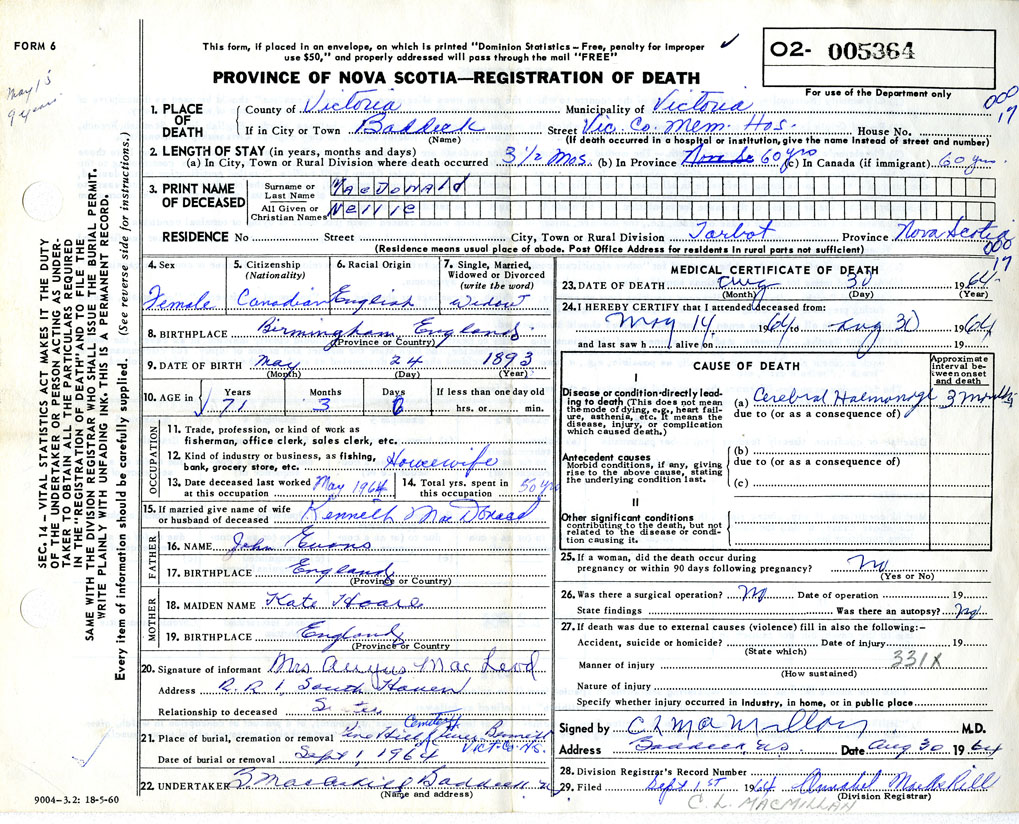 FORM 6
This form, if placed in an envelope, on which is printed "Dominion Statistics – Free, penalty for improper
use $50," and properly addressed will pass through the mail "FREE"
✓
O2- 005364
For use of the Department only
PROVINCE OF NOVA SCOTIA—REGISTRATION OF DEATH
May 15
9 years
000
17
1. PLACE OF DEATH
County of Victoria Municipality of Victoria
If in City or Town Baddeck Street Vic. Co. Mem. Hos. House No.
(Name) (If death occurred in a hospital or institution, give the name instead of street and number)
2. LENGTH OF STAY (in years, months and days)
(a) In City, Town or Rural Division where death occurred 3 1/2 Mos. (b) In Province 60 yrs (c) In Canada (if immigrant) 60 yrs.
3. PRINT NAME OF DECEASED
Surname or Last Name MacDonald
All Given or Christian Names Nellie
RESIDENCE No Street City, Town or Rural Division Tarbot Province Nova Scotia
(Residence means usual place of abode. Post Office Address for residents in rural parts not sufficient)
000
17
4. Sex
Female
5. Citizenship
(Nationality)
Canadian
6. Racial Origin
English
7. Single, Married, Widowed or Divorced
(write the word)
Widow
8. BIRTHPLACE Birmingham England
(Province or Country)
9. DATE OF BIRTH May 24 1893
(Month) (Day) (Year)
10. AGE in
Years Months Days If less than one day old
71 3 6 hrs. or min.
OCCUPATION
11. Trade, profession, or kind of work as
fisherman, office clerk, sales clerk, etc.
12. Kind of industry or business, as fishing,
bank, grocery store, etc. Housewife
13. Date deceased last worked at this occupation May 1964
14. Total yrs. spent in this occupation 50 yrs
15. If married give name of wife
or husband of deceased Kenneth MacDonald
FATHER
16. NAME John Evans
17. BIRTHPLACE England
(Province or Country)
MOTHER
18. MAIDEN NAME Kate Hoare
19. BIRTHPLACE England
(Province or Country
20. Signature of informant Mrs Angus MacLeod
Address R.R.1, South Haven
Relationship to deceased
21. Place of burial, cremation or removal Cemetery
Vict. Co. N.S.
Date of burial or removal Sept 1, 1964
22. UNDERTAKER Baddeck
(Name and address)
9004–3.2: 18-5-60
MEDICAL CERTIFICATE OF DEATH
23. DATE OF DEATH Aug 30 1964
(Month) (Day) (Year)
24. I HEREBY CERTIFY that I attended deceased from:
May 14 1964 to Aug 30 1964
and last saw h alive on 19
CAUSE OF DEATH
Approximate interval between onset and death
I
Disease or condition directly leading to death (This does not mean
the mode of dying, e.g., heart failure, asthenia, etc. It means the
disease, injury, or complication
which caused death.)
(a) Cerebral Haemorrage 3 Months
due to (or as a consequence of)
Antecedent causes
Morbid conditions, if any, giving
rise to the above cause, stating
the underlying condition last.
(b)
due to (or as a consequence of)
(c)
II
Other significant conditions
contributing to the death, but not
related to the disease or condition causing it.
25. If a woman, did the death occur during
pregnancy or within 90 days following pregnancy? No
(Yes or No)
26. Was there a surgical operation? No Date of operation 19
State findings Was there an autopsy? No
27. If death was due to external causes (violence) fill in also the following:–
Accident, suicide or homicide? Date of injury 19
(State which)
Manner of injury 331X
(How sustained)
Nature of injury
Specify whether injury occurred in industry, in home, or in public place
Signed by C L MacMillan M.D.
Address Baddeck NS Date Aug 30 1964
28. Division Registrar's Record Number
29. Filed Sept 1st 1964 Annabel
(Division Registrar)
C. L. MACMILLAN
SEC. 14 – VITAL STATISTICS ACT MAKES IT THE DUTY
OF THE UNDERTAKER OR PERSON ACTING AS UNDER-
TAKER TO OBTAIN ALL THE PARTICULARS REQUIRED
IN THE "REGISTRATION OF DEATH" AND TO FILE THE
SAME WITH THE DIVISION REGISTRAR WHO SHALL ISSUE THE BURIAL PERMIT.
WRITE PLAINLY WITH UNFADING INK. THIS IS A PERMANENT RECORD.
Every item of information should be carefully supplied. (See reverse side for instructions.)